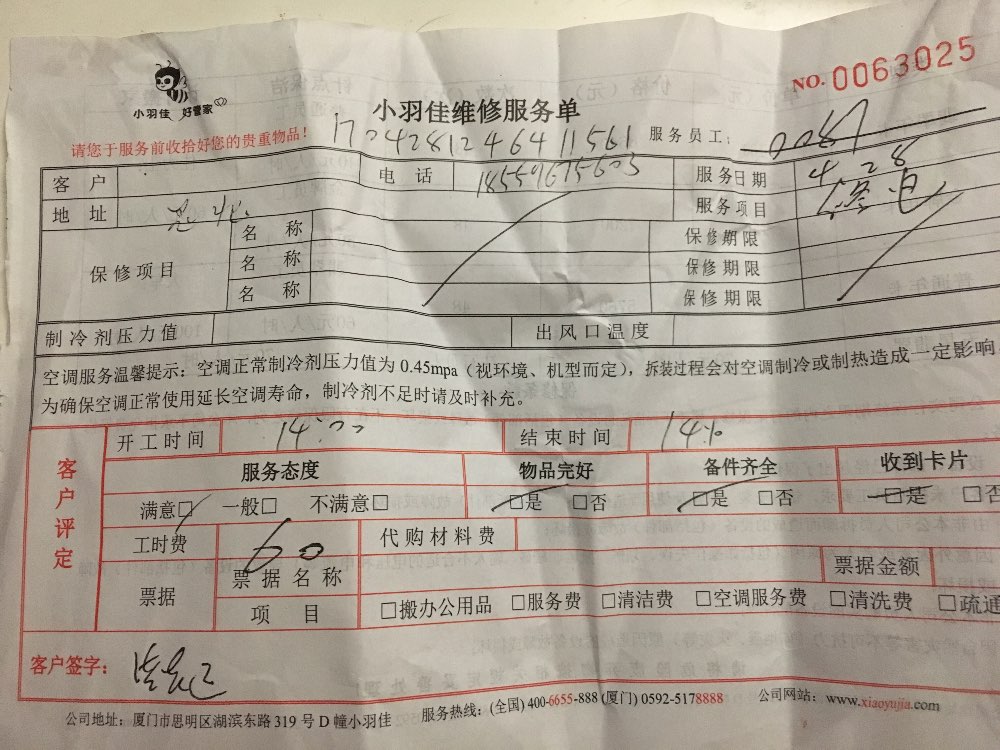 小羽佳 好管家
NO.0063025
小羽佳维修服务单
请您于服务前收拾好您的贵重物品！
1704281246411561
服务员工：
客户 电话 18559675603 服务日期 4 28
地址 服务项目
保修项目 名称 保修期限
名称 保修期限
名称 保修期限
制冷剂压力值 出风口温度
空调服务温馨提示：空调正常制冷剂压力值为 0.45mpa（视环境、机型而定），拆装过程会对空调制冷或制热造成一定影响，
为确保空调正常使用延长空调寿命，制冷剂不足时请及时补充。
客户评定
开工时间 14:00 结束时间
服务态度 物品完好 备件齐全 收到卡片
满意□ 一般□ 不满意□ □是 □否 □是 □否 □是 □否
工时费 60 代购材料费
票据 票据名称 票据金额
项目 □搬办公用品 □服务费 □清洁费 □空调服务费 □清洗费 □疏通
客户签字：
公司地址：厦门市思明区湖滨东路 319 号 D 幢小羽佳 服务热线：(全国) 400-6655-888 (厦门) 0592-5178888 公司网站：www.xiaoyujia.com